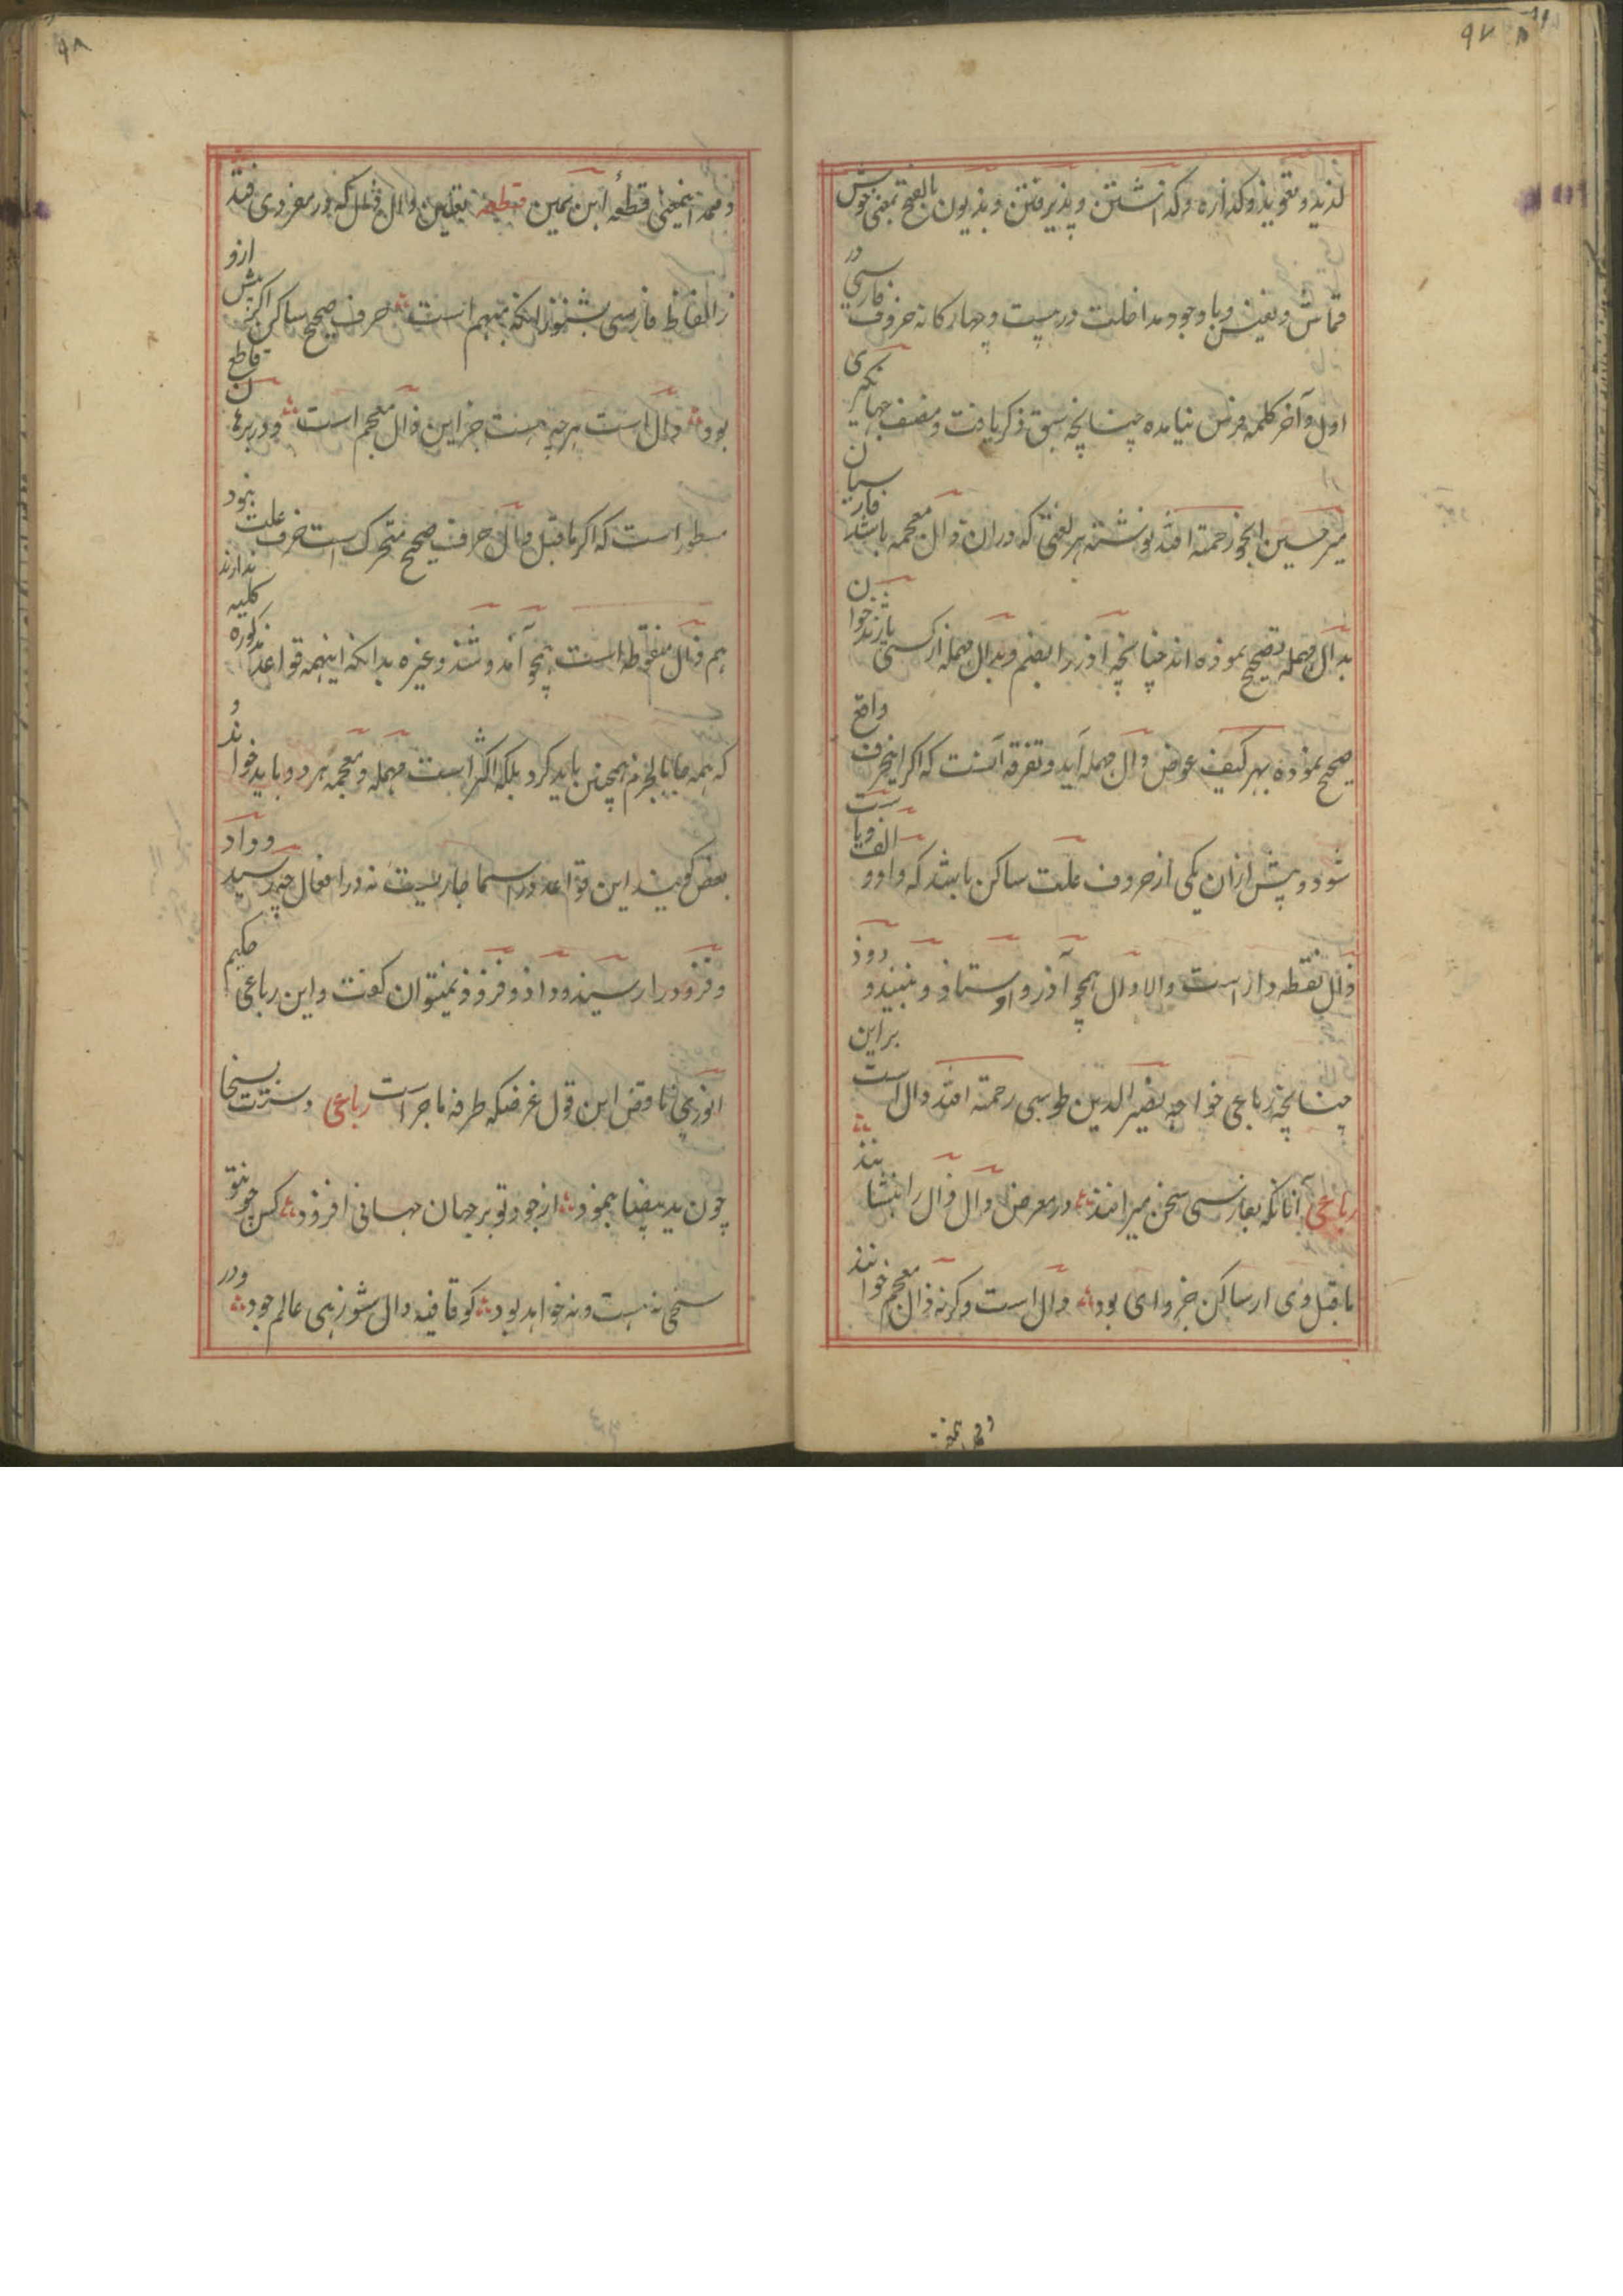 ۹۷
لذیذ و تعویذ و کذاره و کذاشتن و پذیرفتن و بذیون بالفتح بمعنی خوش
قماش و نفیس و با وجود مداخلت در بیست و چهار کانه حروف فارسی در
اول و آخر کلمه فرس نیامده چنانچه سبق ذکر یافت و مصنف جهانکیری
میر حسین انجو رحمة الله نوشته هر لغتی که دران ذال معجمه باشد فارسیان
بدال مهمله تصحیح نموده اند چنانچه آذر را بضم و بدال مهمله از کسی باژند خوان
صحیح نموده بهر کیف عوض دال مهمله آید و تفرقه آنست که اکر اینحرف واقع
شود و پیش ازان یکی از حروف علت ساکن باشد که واو و الف و یا ست
ذال نقطه دار است والا دال همچو آذر و اوستاذ و ببنیذ و دوذ
چنانچه رباعی خواجه نصیر الدین طوسی رحمة الله دال است براین
رباعی آنانکه بفارسی سخن میرانند در معرض دال ذال را ننشانند
ماقبل وی ار ساکن جز وای بود دال است و کرنه ذال معجم خوانند
۹۸
و ممد اینمعنی قطعه ابن یمین قطعه تعیین دال و ذال که در مفردی فتد
ز الفاظ فارسی بشنو زانکه مبهم است حرف صحیح ساکن اکر پیش ازو
بود دال است هرچه هست جز این ذال معجم است و در برهان قاطع
سطور است که اکر ماقبل دال حرف صحیح متحرک است حرف علت نبود
هم ذال منقوطه است همچو آمذ و شذ و غیره بدانکه اینهمه قواعد مذکوره کلیه ندارند
که همه جا بالجزم همچنین باید کرد بلکه اکثر است مهمله و معجمه هر دو باید خواند و
بعض کویند این قواعد در اسما جاریست نه در افعال چه رسید و داد
و فزود را رسیذ و داذ و فزوذ نمیتوان کفت و این رباعی حکیم
انوری مناقض این قول غرضکه طرفه ماجراست رباعی دستت بسخا
چون ید بیضا بنمود از جود تو بر جهان جهانی افزود کس چون تو
سخی نه هست و نه خواهد بود کو قافیه دال شو زهی عالم جود و در